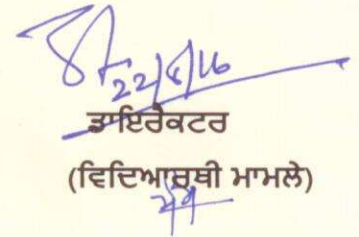 22/6/16
ਡਾਇਰੈਕਟਰ
(ਵਿਦਿਆਰਥੀ ਮਾਮਲੇ)